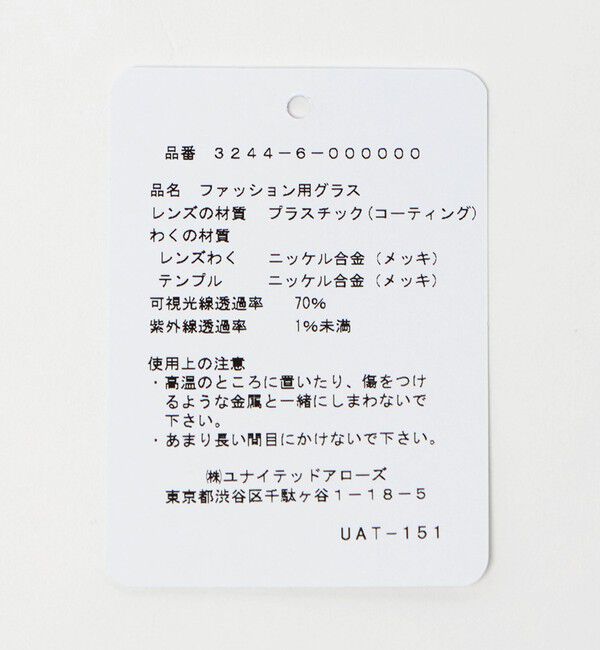 品番 3244-6-000000
品名 ファッション用グラス
レンズの材質 プラスチック(コーティング)
わくの材質
レンズわく ニッケル合金(メッキ)
テンプル ニッケル合金(メッキ)
可視光線透過率 70%
紫外線透過率 1%未満
使用上の注意
・高温のところに置いたり、傷をつけ
るような金属と一緒にしまわないで
下さい。
・あまり長い間目にかけないで下さい。
㈱ユナイテッドアローズ
東京都渋谷区千駄ヶ谷1-18-5
UAT-151